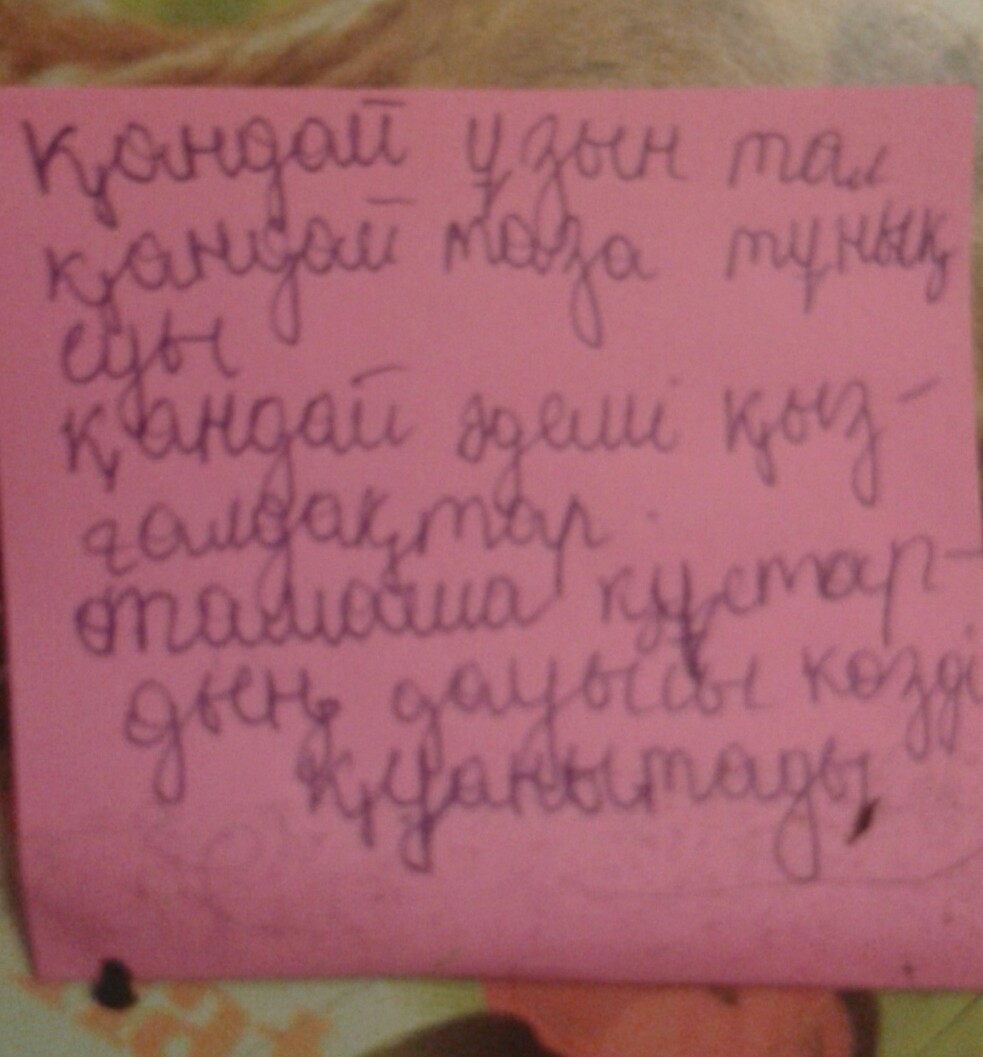 Қандай ұзын тал
қандай таза тұнық
суы
қандай әдемі қыз-
ғалдақтар
тамаша құстар-
дың дауысы көзді
қуанытады